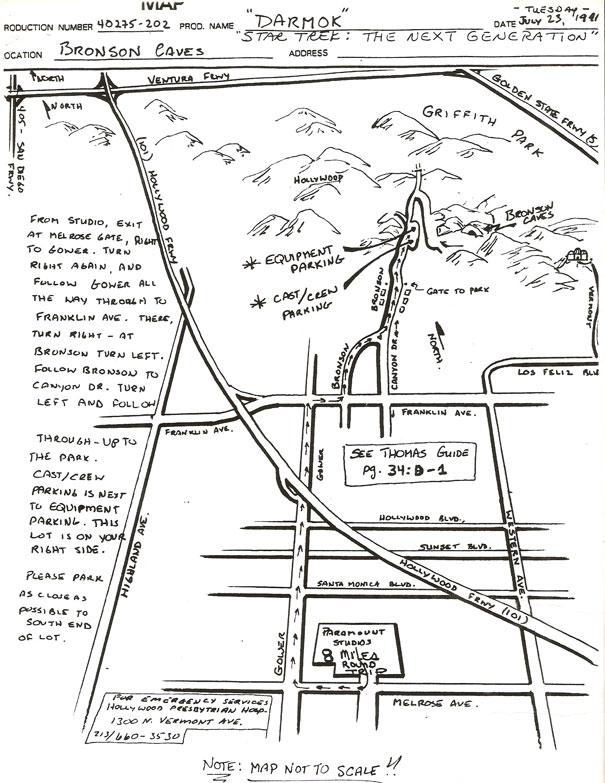 MAP
PRODUCTION NUMBER 40275-202 PROD. NAME "DARMOK" - TUESDAY -
DATE JULY 23, 1991
"STAR TREK: THE NEXT GENERATION"
LOCATION BRONSON CAVES ADDRESS
NORTH
VENTURA FRWY
NORTH
405 - SAN DIEGO FRWY.
(101) HOLLYWOOD FRWY
GOLDEN STATE FRWY (5)
GRIFFITH PARK
HOLLYWOOD
BRONSON CAVES
* EQUIPMENT PARKING
* CAST/CREW PARKING
BRONSON
GATE TO PARK
NORTH.
CANYON DR.
BRONSON
VERMONT
LOS FELIZ BLV
FROM STUDIO, EXIT
AT MELROSE GATE, RIGHT
TO GOWER. TURN
RIGHT AGAIN, AND
FOLLOW GOWER ALL
THE WAY THROUGH TO
FRANKLIN AVE. THERE,
TURN RIGHT - AT
BRONSON TURN LEFT.
FOLLOW BRONSON TO
CANYON DR. TURN
LEFT AND FOLLOW
THROUGH - UP TO
THE PARK.
CAST/CREW
PARKING IS NEXT
TO EQUIPMENT
PARKING. THIS
LOT IS ON YOUR
RIGHT SIDE.
PLEASE PARK
AS CLOSE AS
POSSIBLE TO
SOUTH END
OF LOT.
FRANKLIN AVE.
FRANKLIN AVE.
GOWER
SEE THOMAS GUIDE
pg. 34:D-1
HOLLYWOOD BLVD.
SUNSET BLVD.
SANTA MONICA BLVD.
HOLLYWOOD FRWY (101)
WESTERN AVE.
HIGHLAND AVE.
GOWER
PARAMOUNT
STUDIOS
8 MILES
ROUND
TRIP
MELROSE AVE.
FOR EMERGENCY SERVICES
HOLLYWOOD PRESBYTRIAN HOSP.
1300 N. VERMONT AVE.
213/660-3530
NOTE: MAP NOT TO SCALE!!